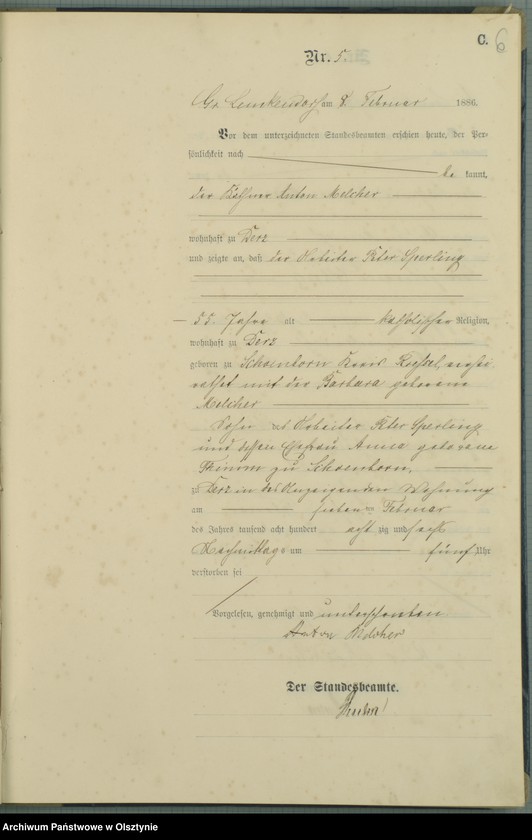 C. 6
Nr. 5.
Gr. Leuckendorf am 8. Februar 1886.
Vor dem unterzeichneten Standesbeamten erschien heute, der Per-
sönlichkeit nach
be kannt,
der Käthner Anton Melcher
wohnhaft zu Derz
und zeigte an, daß der Arbeiter Peter Sperling
55 Jahre alt katholischer Religion,
wohnhaft zu Derz
geboren zu Schoenborn Kreis Roessel, verhei
rathet mit der Barbara geborene
Melcher
Sohn des Arbeiter Peter Sperling
und dessen Ehefrau Anna geborene
zu Schoenborn,
zu Derz in des Anzeigenden Wohnung
am sieben ten Februar
des Jahres tausend acht hundert acht zig und sechs
Nachmittags um fünf Uhr
verstorben sei
Vorgelesen, genehmigt und unterschrieben
Anton Melcher
Der Standesbeamte.